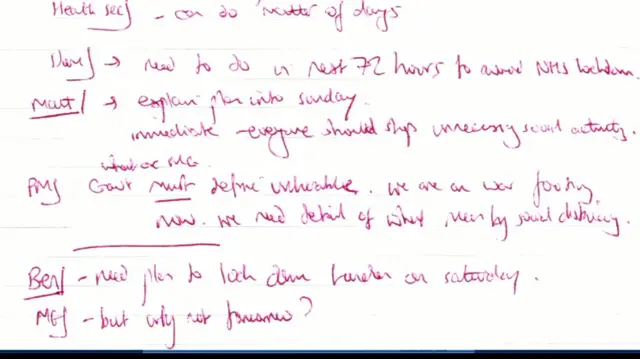 Health Sec/ - can do "matter of days
→ need to do in next 72 hours to avoid NHS lockdown.
→ explain plan into Sunday.
immediate - everyone should stop unnecessary social activity.
PM/ Govt must define vulnerable. we are on war footing
now. we need detail of what mean by social distancing.
Ben/ - need plan to lock down harder on Saturday.
- but why not tomorrow?